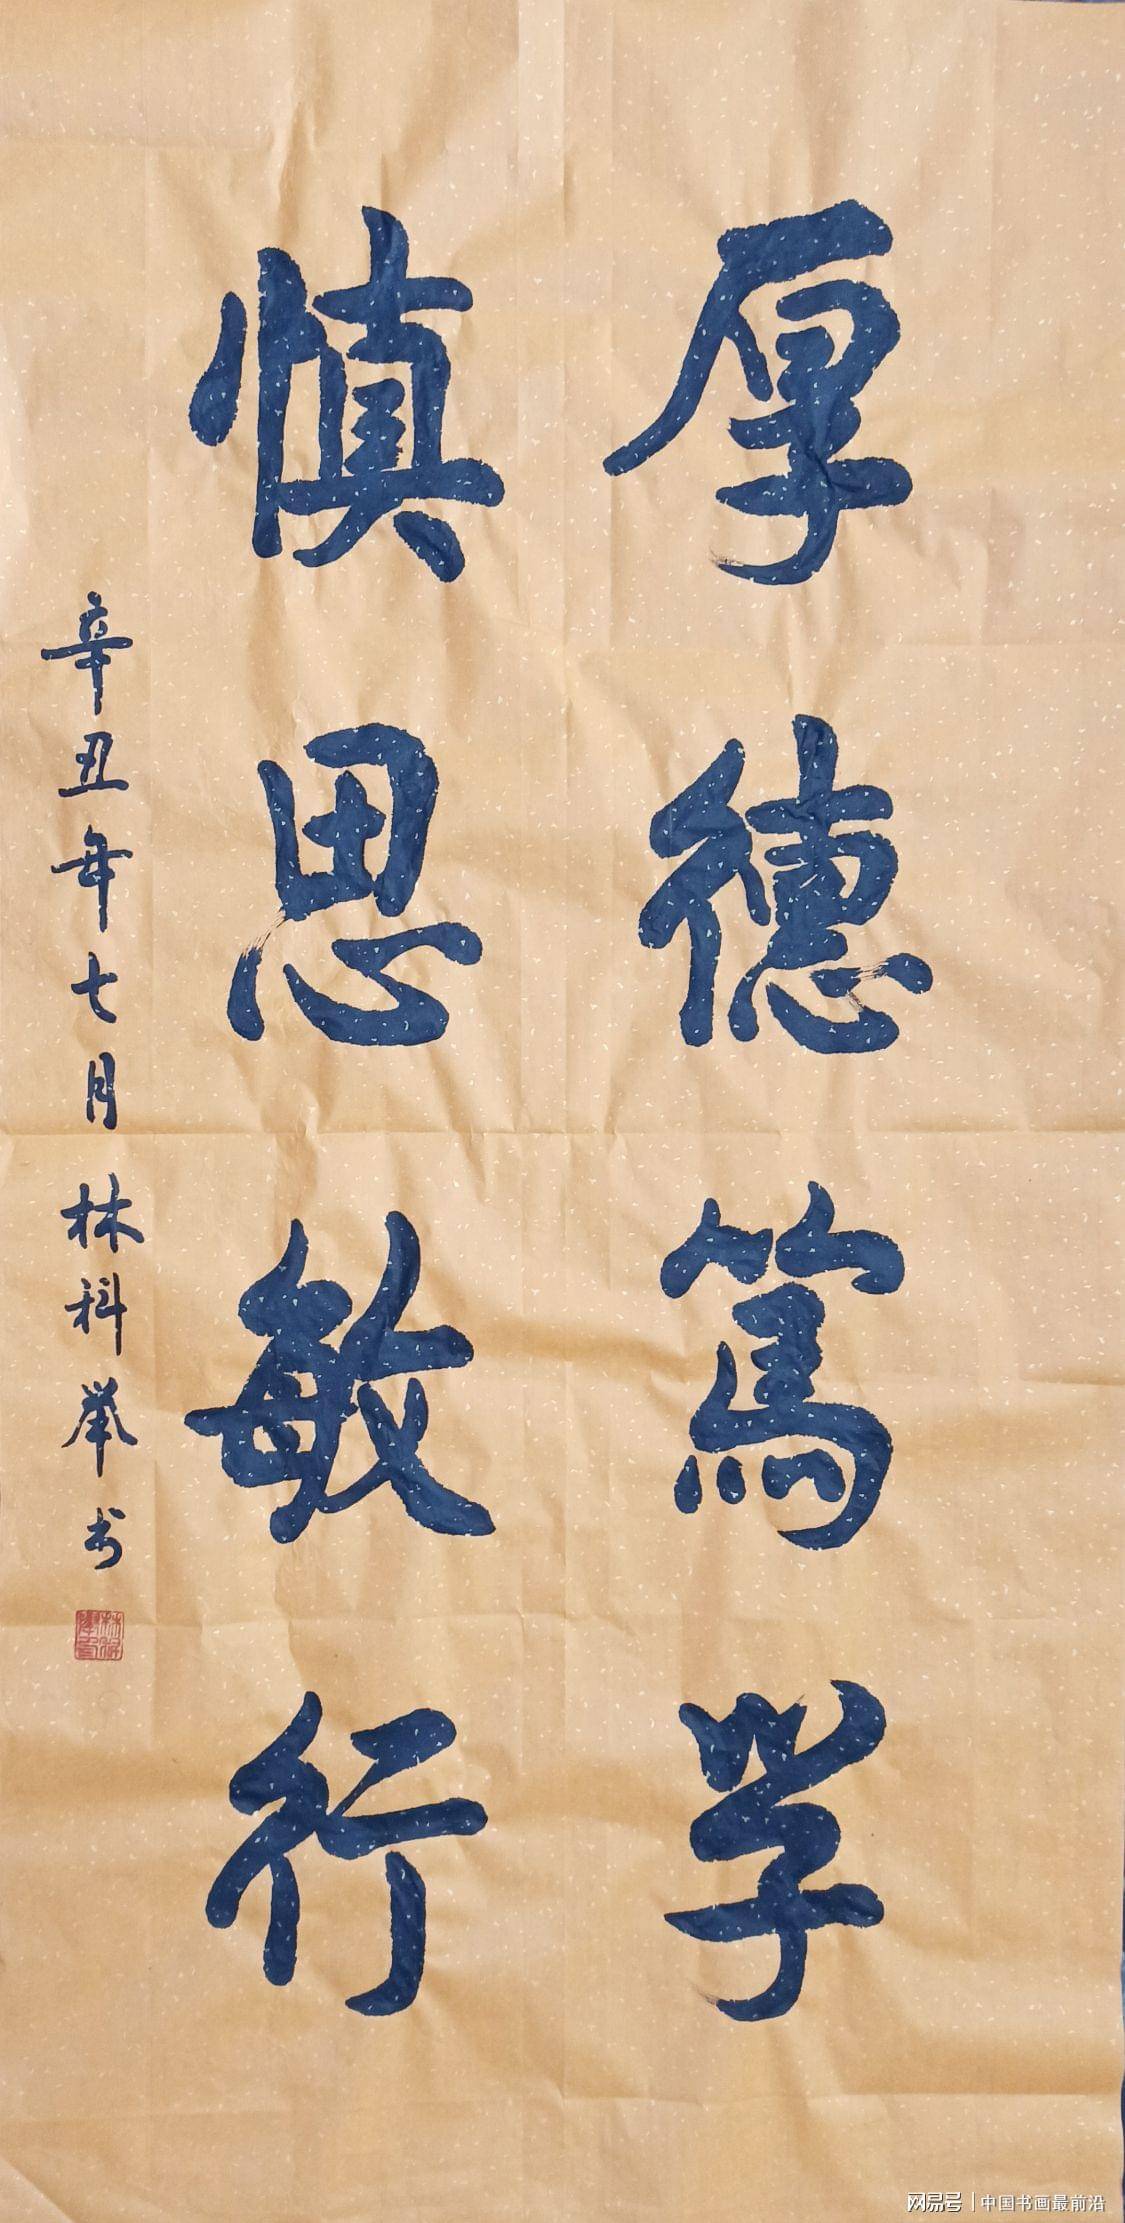 厚德笃学
慎思敏行
辛丑年七月林科举书
网易号 | 中国书画最前沿